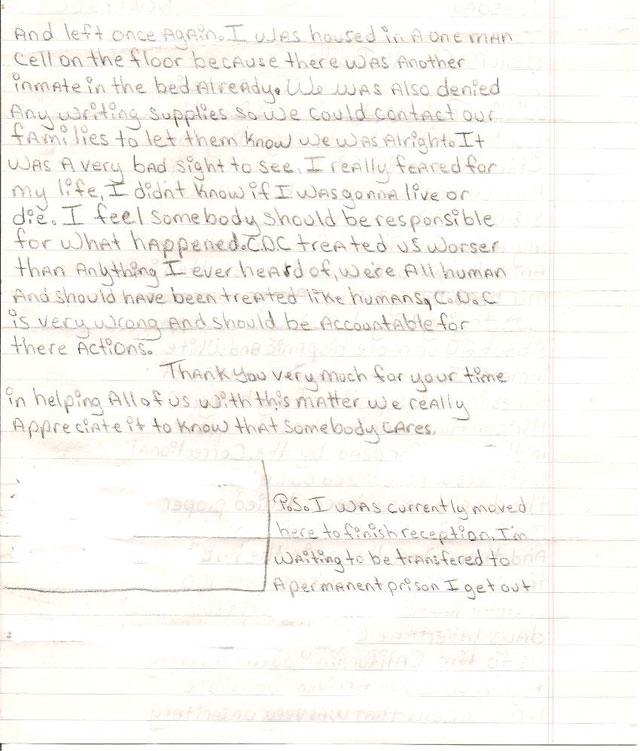 And left once again. I was housed in a one man
cell on the floor because there was another
inmate in the bed already. We was also denied
any writing supplies so we could contact our
families to let them know we was alright. It
was a very bad sight to see. I really feared for
my life, I didn't know if I was gonna live or
die. I feel somebody should be responsible
for what happened. CDC treated us worser
than anything I ever heard of, we're all human
and should have been treated like humans, C.D.C
is very wrong and should be accountable for
there actions.
Thank you very much for your time
in helping all of us with this matter we really
appreciate it to know that somebody cares.
P.S. I was currently moved
here to finish reception. I'm
waiting to be transfered to
a permanent prison I get out